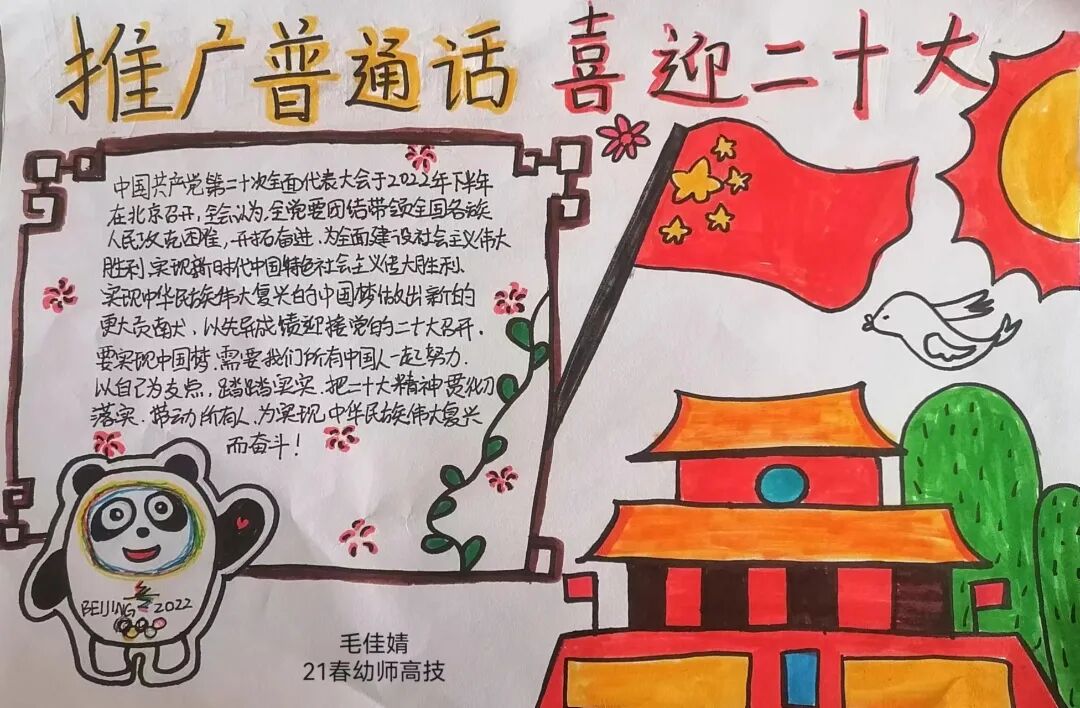 推广普通话 喜迎二十大
中国共产党第二十次全面代表大会于2022年下半年
在北京召开,全会认为,全党要团结带领全国各族
人民攻克困难,开拓奋进,为全面建设社会主义伟大
胜利,实现新时代中国特色社会主义伟大胜利、
实现中华民族伟大复兴的中国梦做出新的
更大贡献,以优异成绩迎接党的二十大召开.
要实现中国梦.需要我们所有中国人一起努力.
以自己为支点,踏踏实实.把二十大精神贯彻
落实.带动所有人,为实现中华民族伟大复兴
而奋斗!
BEIJING 2022
毛佳婧
21春幼师高技